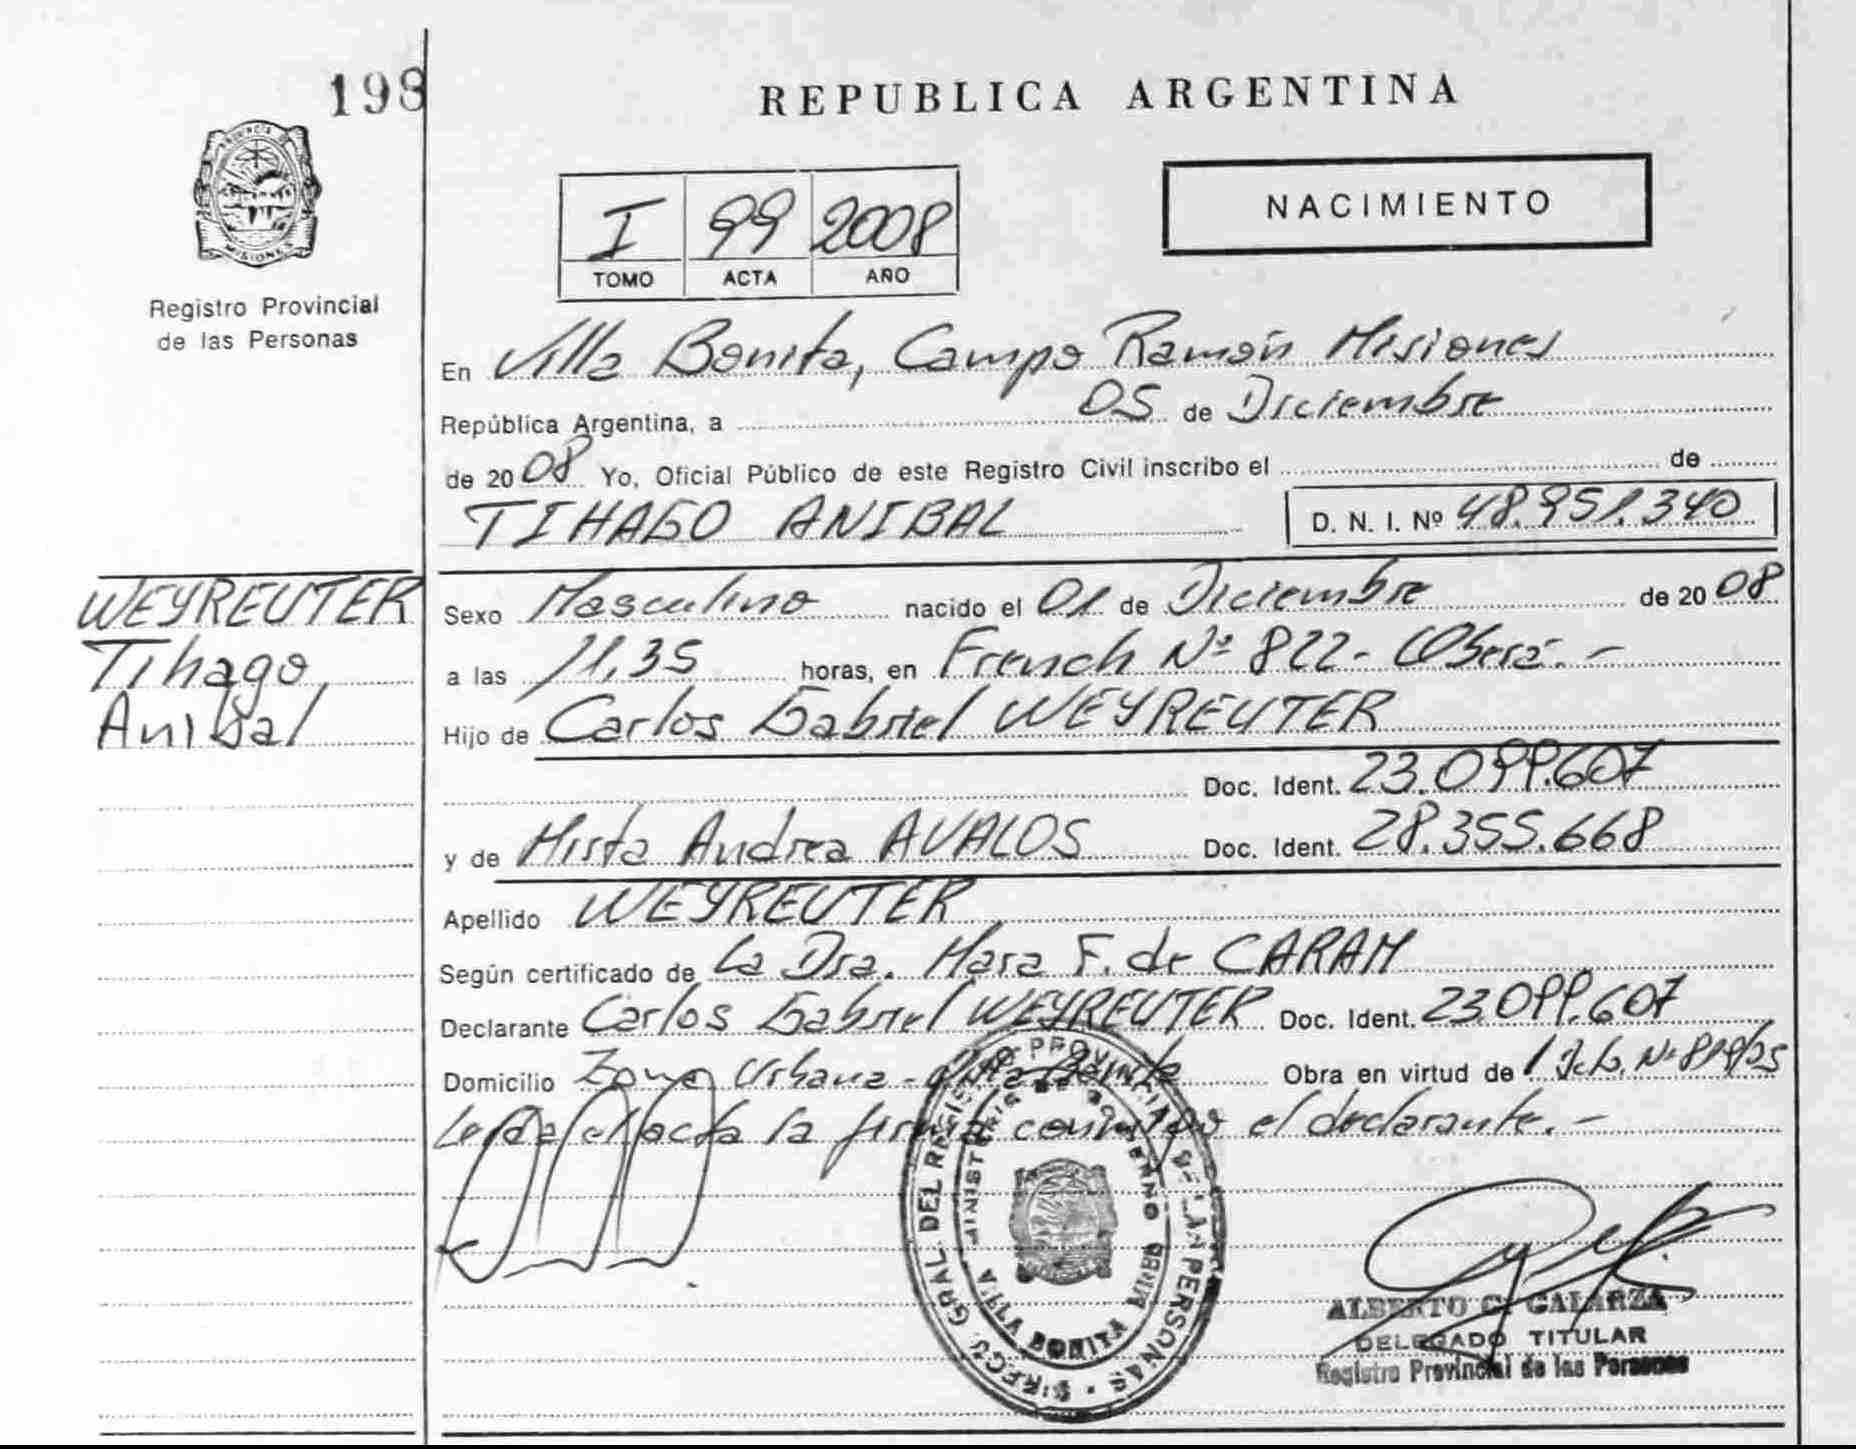 198
REPUBLICA ARGENTINA
PROVINCIA DE
MISIONES
Registro Provincial
de las Personas
I 99 2008
TOMO ACTA AÑO
NACIMIENTO
En Villa Bonita, Campo Ramón Misiones
República Argentina, a 05 de Diciembre
de 2008 Yo, Oficial Público de este Registro Civil inscribo el de
TIHAGO ANIBAL D. N. I. Nº 48.951.340
WEYREUTER
Tihago
Anibal
Sexo Masculino nacido el 01 de Diciembre de 2008
a las 11,35 horas, en French Nº 822- Oberá.-
Hijo de Carlos Gabriel WEYREUTER
Doc. Ident. 23.099.607
y de Mirta Andrea AVALOS Doc. Ident. 28.355.668
Apellido WEYREUTER
Según certificado de La Dra. Mara F. de CARAM
Declarante Carlos Gabriel WEYREUTER Doc. Ident. 23.099.607
Domicilio Zona Urbana - Obra en virtud de
Leída el acta la firma conmigo el declarante.-
DIREC. GRAL. DEL REGISTRO PROVINCIAL DE LAS PERSONAS
MINISTERIO DE GOBIERNO
VILLA BONITA
ALBERTO C. GALARZA
DELEGADO TITULAR
Registro Provincial de las Personas